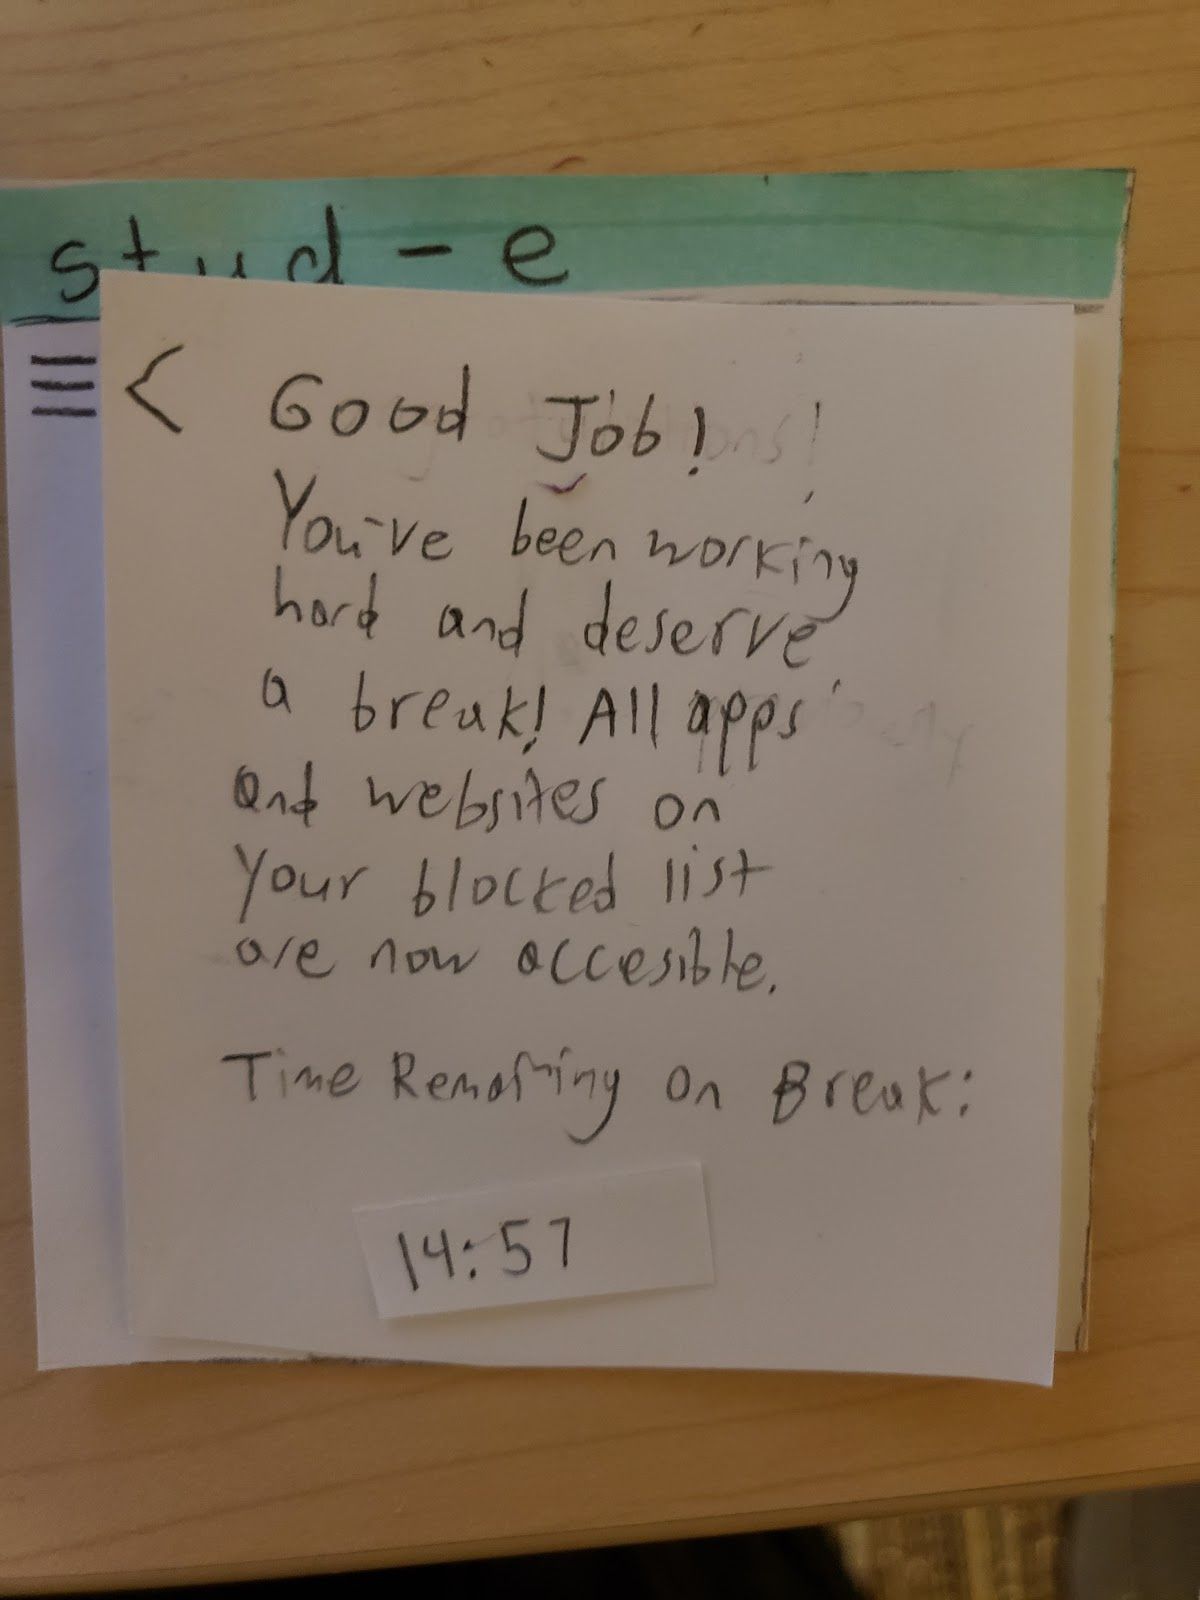 stud-e
Good Job!
You've been working
hard and deserve
a break! All apps
and websites on
your blocked list
are now accesible.
Time Remaining on Break:
14:57